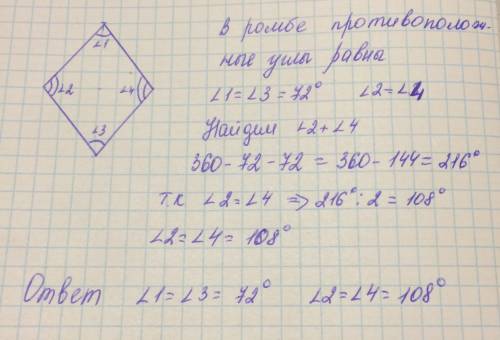 ∠1
∠2
∠4
∠3
В ромбе противополож-
ные углы равны
∠1 = ∠3 = 72° ∠2 = ∠4
Найдем ∠2 + ∠4
360 - 72 - 72 = 360 - 144 = 216°
т.к ∠2 = ∠4 => 216° : 2 = 108°
∠2 = ∠4 = 108°
Ответ ∠1 = ∠3 = 72° ∠2 = ∠4 = 108°